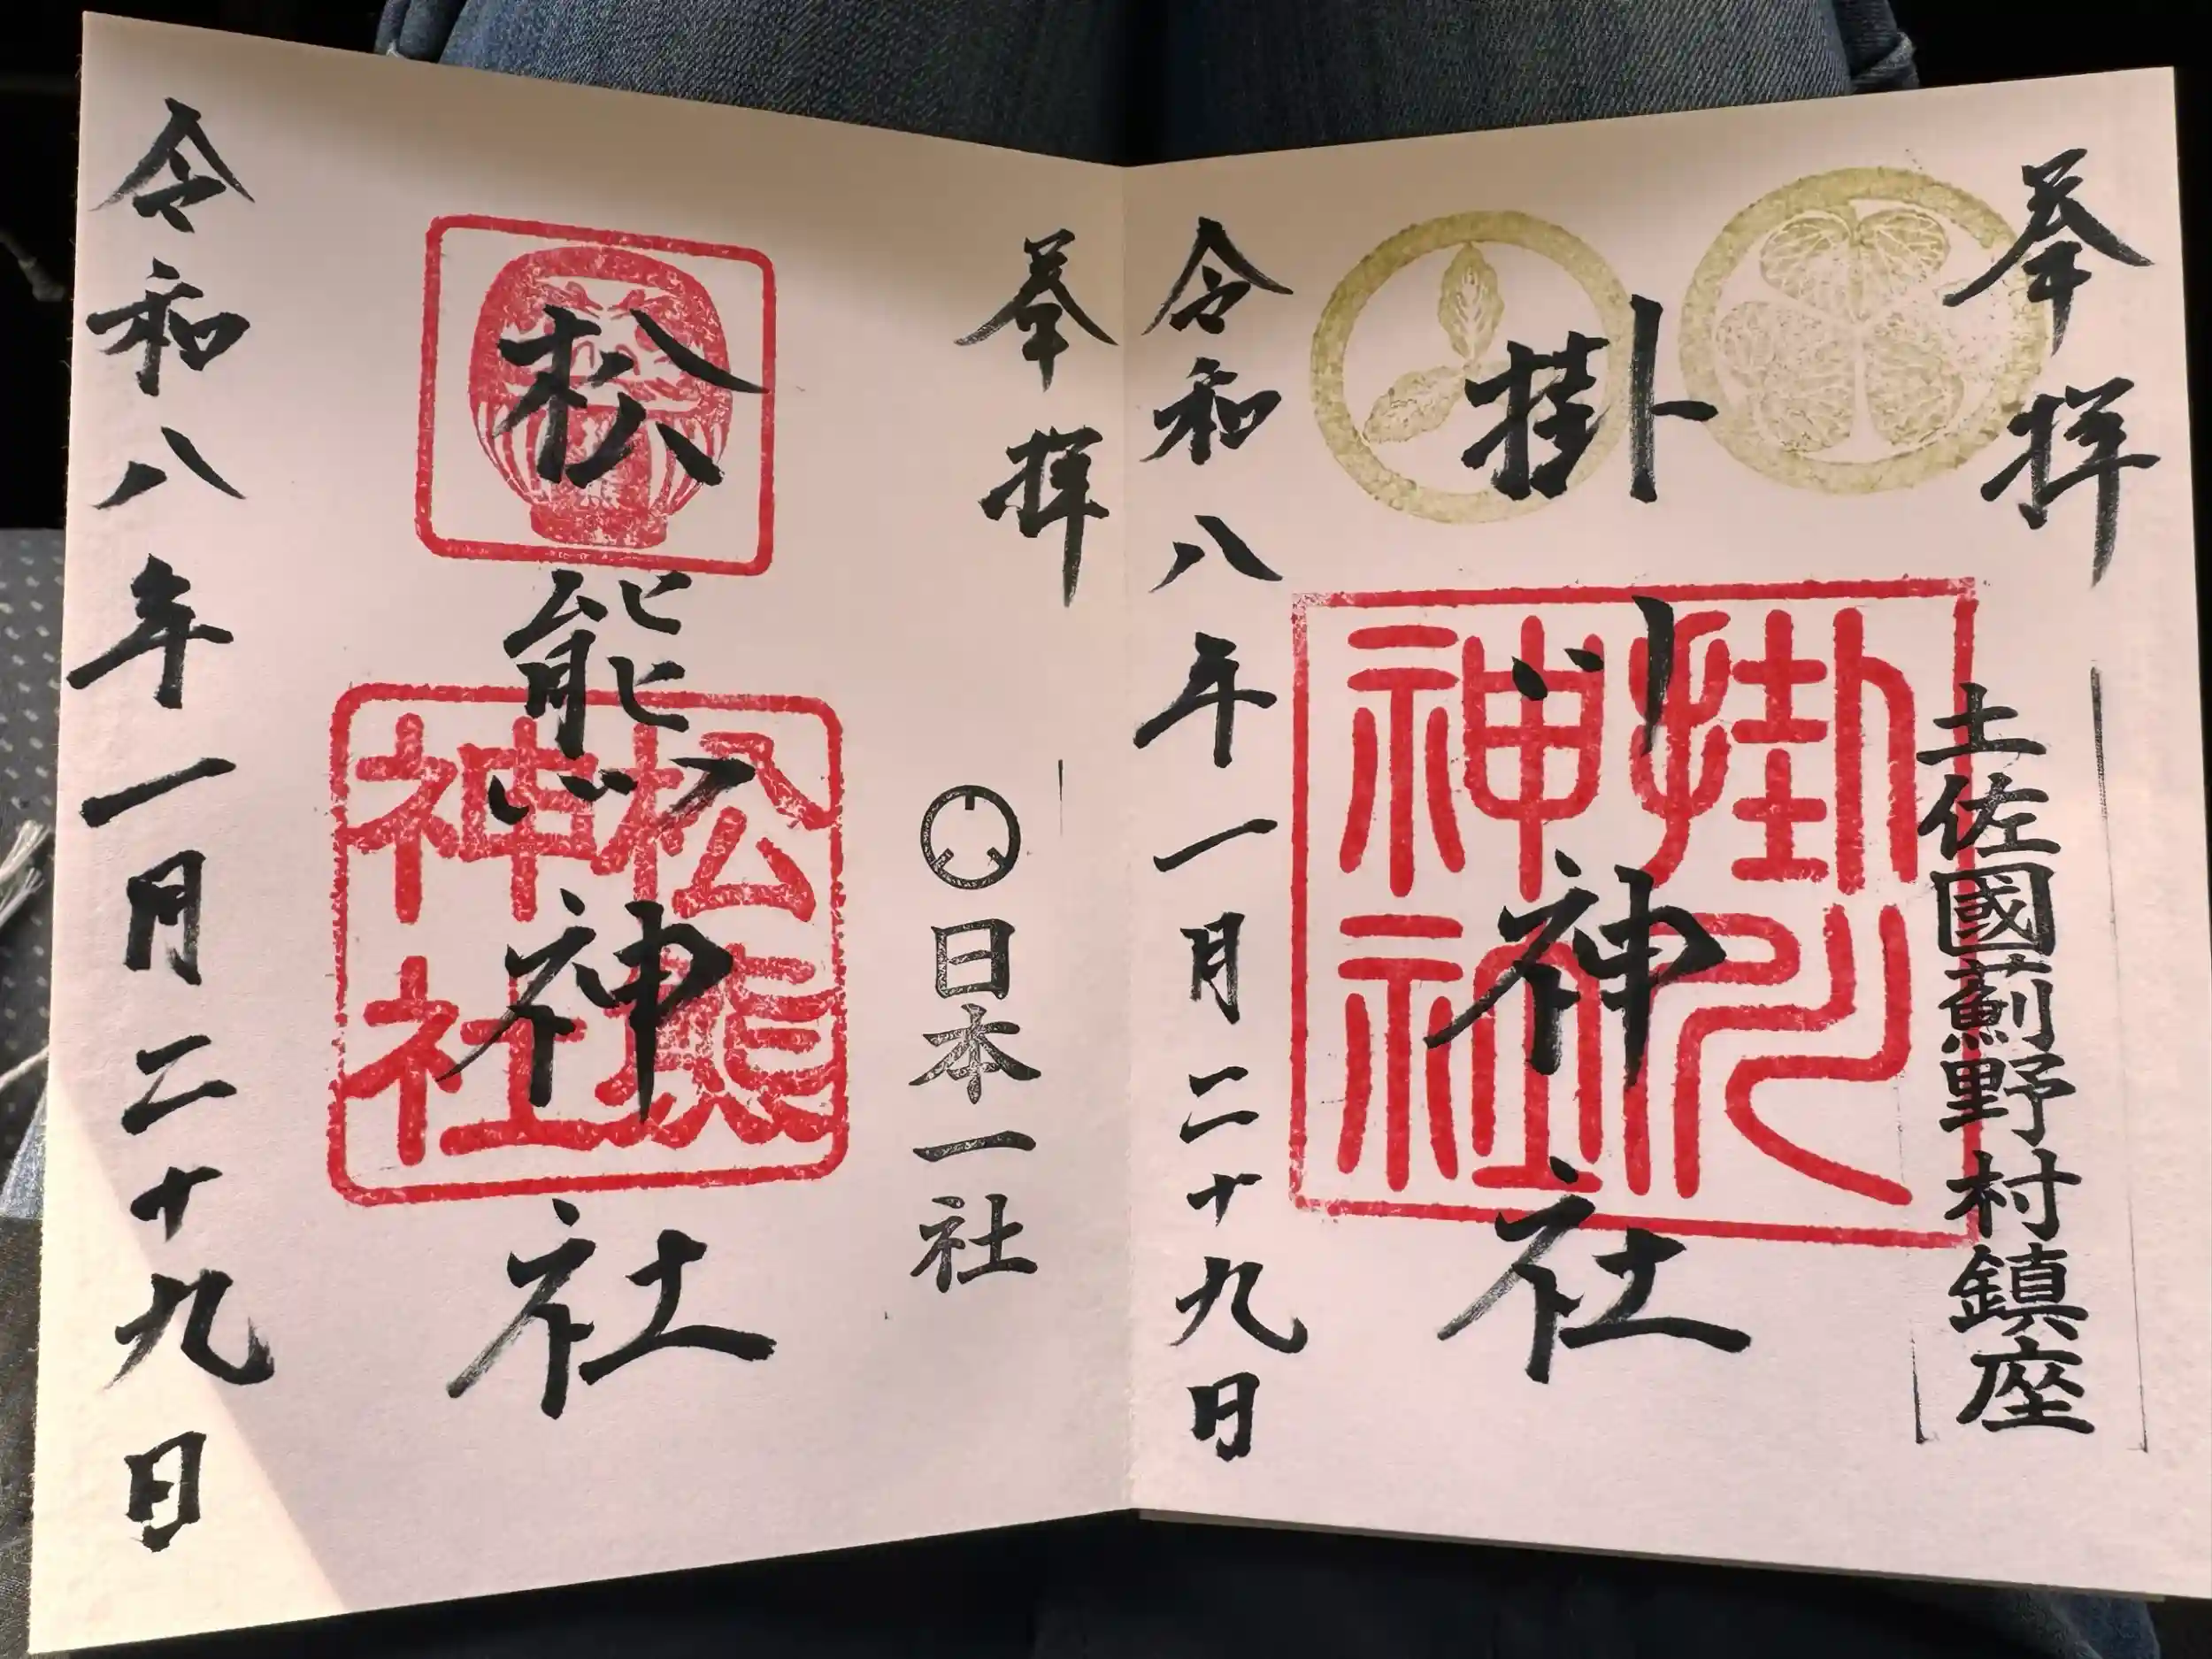 奉拝
土佐國薊野村鎮座
掛川神社
掛川
神社
令和八年一月二十九日
奉拝
日本一社
松熊神社
松熊
神社
令和八年一月二十九日